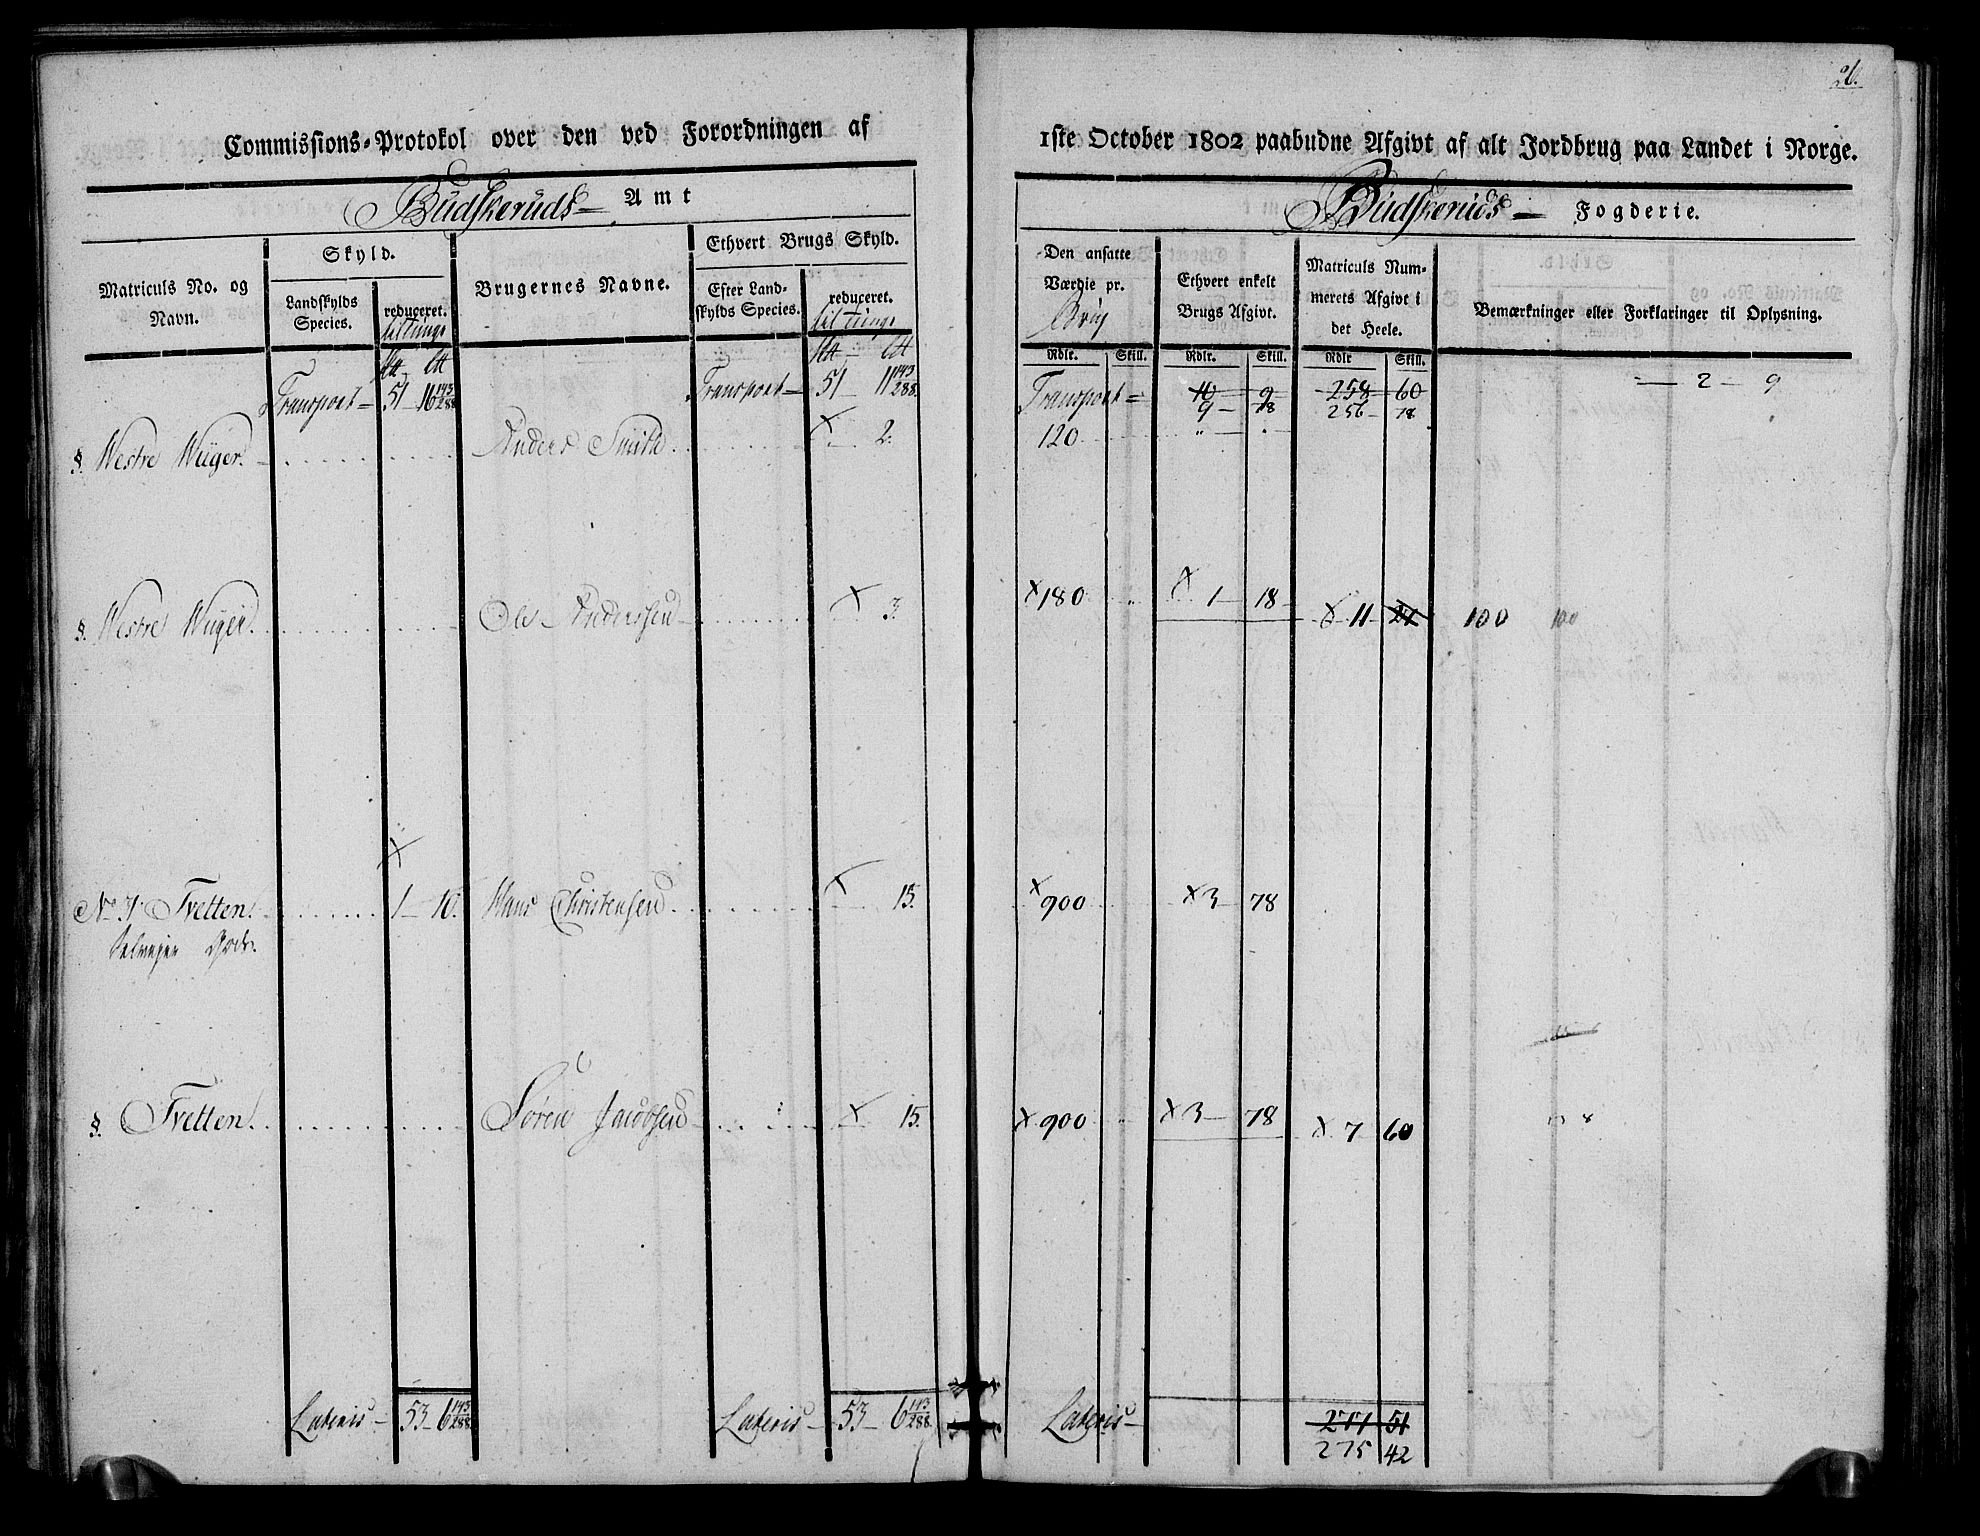 26.
Commissions-Protokol over den ved Forordningen af 1ste October 1802 paabudne Afgivt af alt Jordbrug paa Landet i Norge.
Budskeruds Amt
Budskeruds Fogderie.
Matriculs No. og Navn.
Skyld.
Landskylds Species.
reduceret.
Brugernes Navne.
Ethvert Brugs Skyld.
Efter Landskylds Species.
reduceret.
Den ansatte Værdie pr. Brug
Ethvert enkelt Brugs Afgivt.
Matriculs Nummerets Afgivt i det Heele.
Bemærkninger eller Forklaringer til Oplysning.
Rdlr. Skill. Rdlr. Skill. Rdlr Skill.
Transport 51 16 143/288 Transport 51 11 143/288 Transport 10 9 258 60 2 9
9 18 256 78
§. Westre Wüger. Anders Smith 2. 120
§. Westre Wüger. Ole Anderssen 3. 180 1 18 11 21 100 100
No 7. Tvetten. 1 10. Hans Christensen 15. 900 3 78
Gods.
§. Tvetten. Sören Jacobsen 15. 900 3 78 7 60
Lateris 53 6 143/288 Lateris 53 6 143/288 Lateris 277 51
275 42